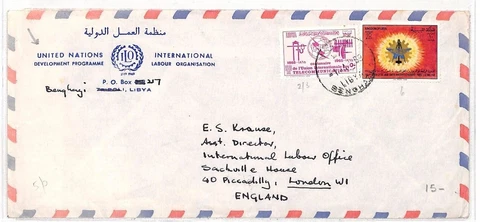 منظمة العمل الدولية
UNITED NATIONS
DEVELOPMENT PROGRAMME
INTERNATIONAL
LABOUR ORGANISATION
P. O. Box 257
Benghazi, LIBYA
TELECOMMUNICATIONS
LIBYA
E. S. Krause,
Asst. Director,
International Labour Office
Sackville House
40 Piccadilly, London W1
ENGLAND
15-